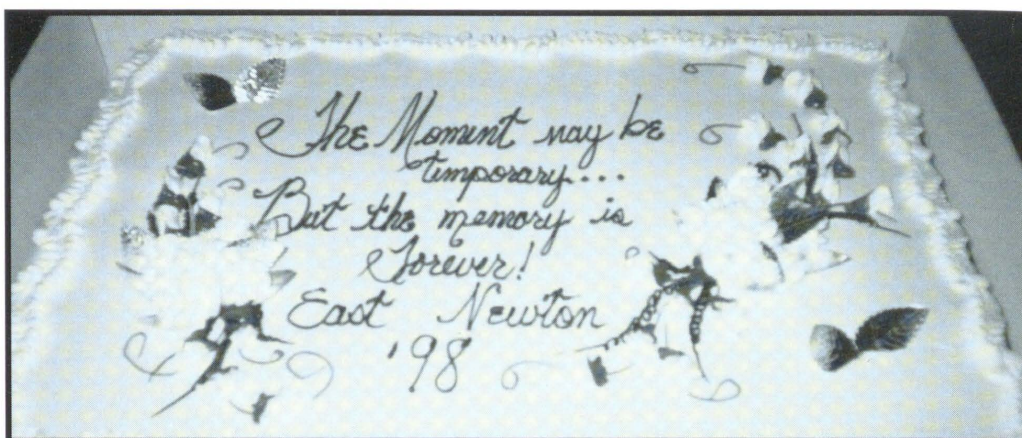 The Moment may be
temporary...
But the memory is
Forever!
East Newton
'98